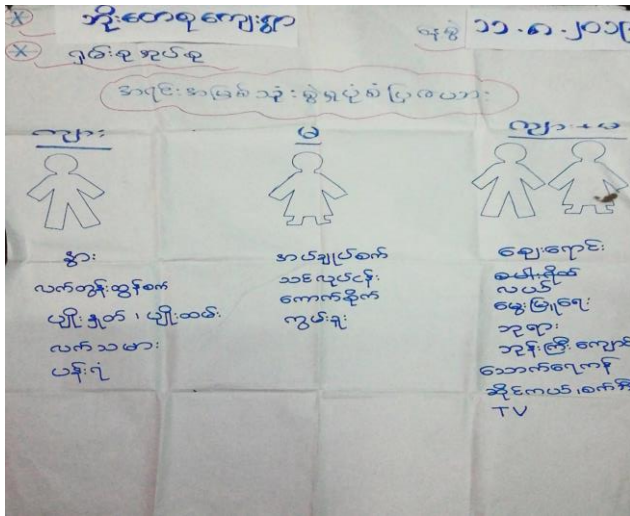 ဘိုးတောစုကျေးရွာ
နေ့စွဲ ၁၁.၈.၂၀၁
ရှမ်းစုအုပ်စု
အရင်းအမြစ်သုံးစွဲမှုပုံစံပြဇယား
ကျား
မ
ကျား+မ
နွား
လက်တွန်းထွန်စက်
ပျိုးနှုတ်၊ ပျိုးထမ်း
လက်သမား
ပန်းရံ
အပ်ချုပ်စက်
သစ်လုပ်ငန်း
ကောက်စိုက်
ကွမ်းရူး
ဈေးရောင်း
လယ်
မွေးမြူရေး
ဘုရား
ဘုန်းကြီးကျောင်း
သောက်ရေကန်
ဆိုင်ကယ်၊
TV